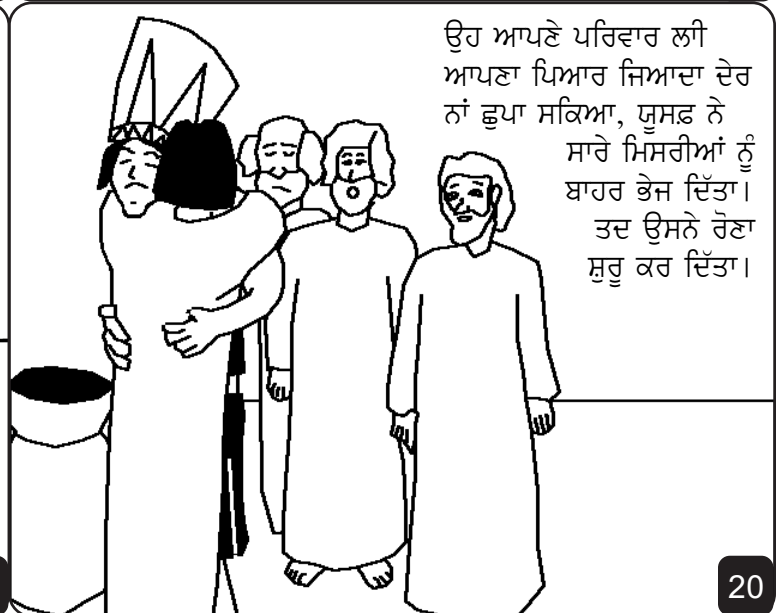 ਉਹ ਆਪਣੇ ਪਰਿਵਾਰ ਲਾੀ
ਆਪਣਾ ਪਿਆਰ ਜਿਆਦਾ ਦੇਰ
ਨਾਂ ਛੁਪਾ ਸਕਿਆ, ਯੂਸਫ਼ ਨੇ
ਸਾਰੇ ਮਿਸਰੀਆਂ ਨੂੰ
ਬਾਹਰ ਭੇਜ ਦਿੱਤਾ।
ਤਦ ਉਸਨੇ ਰੋਣਾ
ਸ਼ੁਰੂ ਕਰ ਦਿੱਤਾ।
20